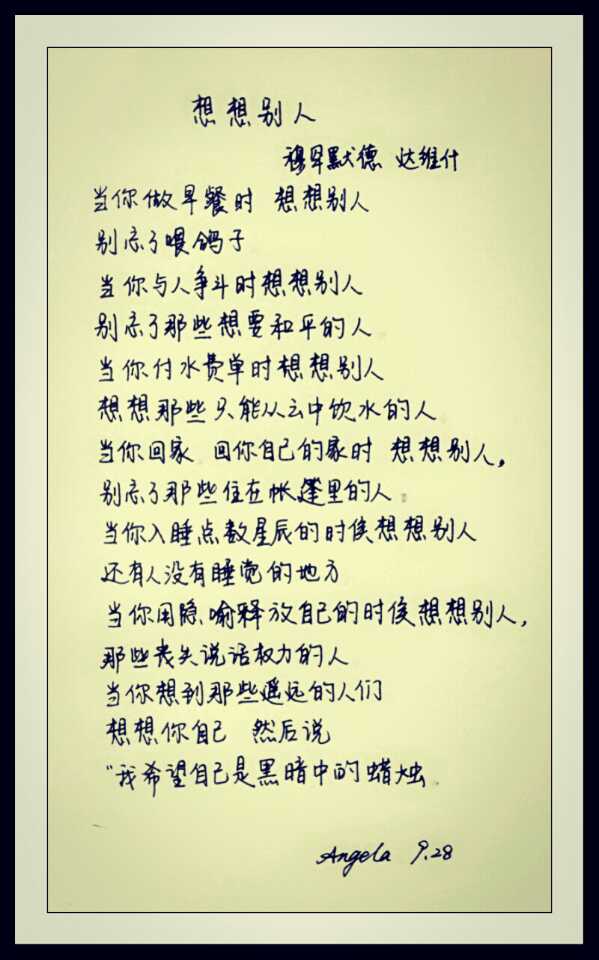 想想别人
穆罕默德 达维什
当你做早餐时 想想别人
别忘了喂鸽子
当你与人争斗时想想别人
别忘了那些想要和平的人
当你付水费单时想想别人
想想那些只能从云中饮水的人
当你回家 回你自己的家时 想想别人,
别忘了那些住在帐篷里的人。
当你入睡点数星辰的时侯想想别人
还有人没有睡觉的地方
当你用隐喻释放自己的时侯想想别人,
那些丧失说话权力的人
当你想到那些遥远的人们
想想你自己 然后说
“我希望自己是黑暗中的蜡烛
Angela 9.28